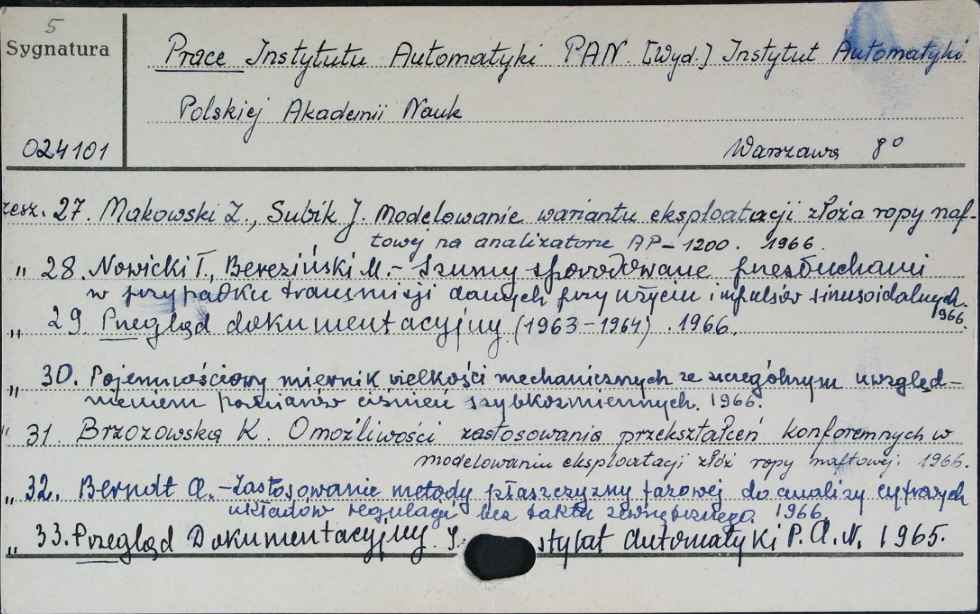 5
Sygnatura
Prace Instytutu Automatyki PAN. [Wyd.] Instytut Automatyki
Polskiej Akademii Nauk
024101
Warszawa 8°
zesz. 27. Makowski Z., Subik J. Modelowanie wariantu eksploatacji złoża ropy naf-
towej na analizatorze AP-1200. 1966.
" 28. Nowicki T., Bereziński M. - Szumy spowodowane przesłuchami
w przypadku transmisji danych przy użyciu impulsów sinusoidalnych.
1966.
" 29. Przegląd dokumentacyjny (1963-1964). 1966.
" 30. Pojemnościowy miernik wielkości mechanicznych ze szczególnym uwzględ-
nieniem pomiarów ciśnień szybkozmiennych. 1966.
" 31. Brzozowska K. O możliwości zastosowania przekształceń konforemnych w
modelowaniu eksploatacji złóż ropy naftowej. 1966.
" 32. Berndt A. - Zastosowanie metody płaszczyzny fazowej do analizy cyfrowych
układów regulacji bez taktu zewnętrznego. 1966.
" 33. Przegląd Dokumentacyjny. Automatyki P.A.N. 1965.